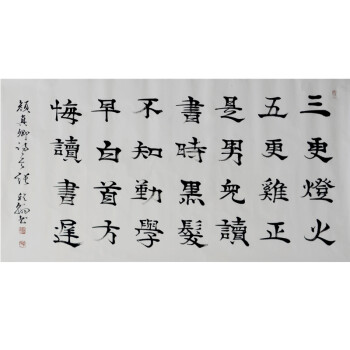 三更燈火
五更雞正
是男兒讀
書時黑髮
不知勤學
早白首方
悔讀書遲
顏真卿詩